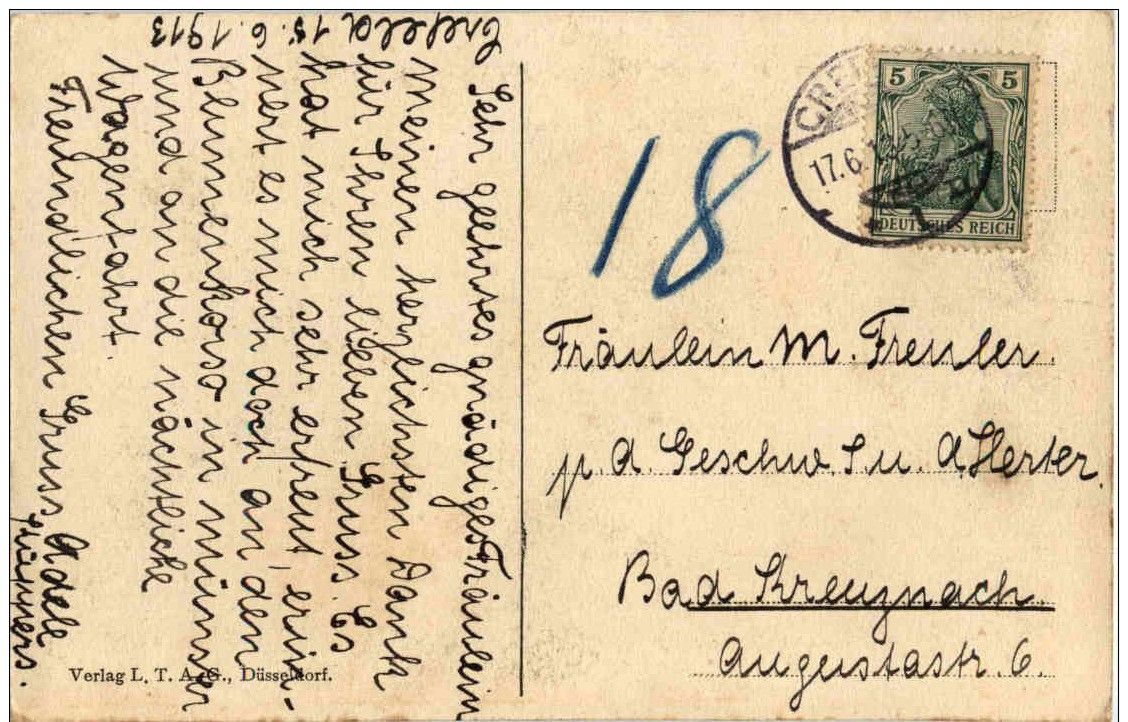 Crefeld 15. 6. 1913
Sehr geehrtes gnädiges Fräulein
Meinen herzlichsten Dank
für Ihren lieben Gruss. Es
hat mich sehr erfreut, erin-
nert es mich doch an den
Blumenkorso in Münster
und an die nächtliche
Wagenfahrt.
Freundlichen Gruss, Adele
Küppers.
Verlag L. T. A. G., Düsseldorf.
18
CREF
17.6.1
5 5
DEUTSCHES REICH
Fräulein M. Freuler.
p. a. Geschw. S. u. A Herter.
Bad Kreuznach
Augustastr. 6.